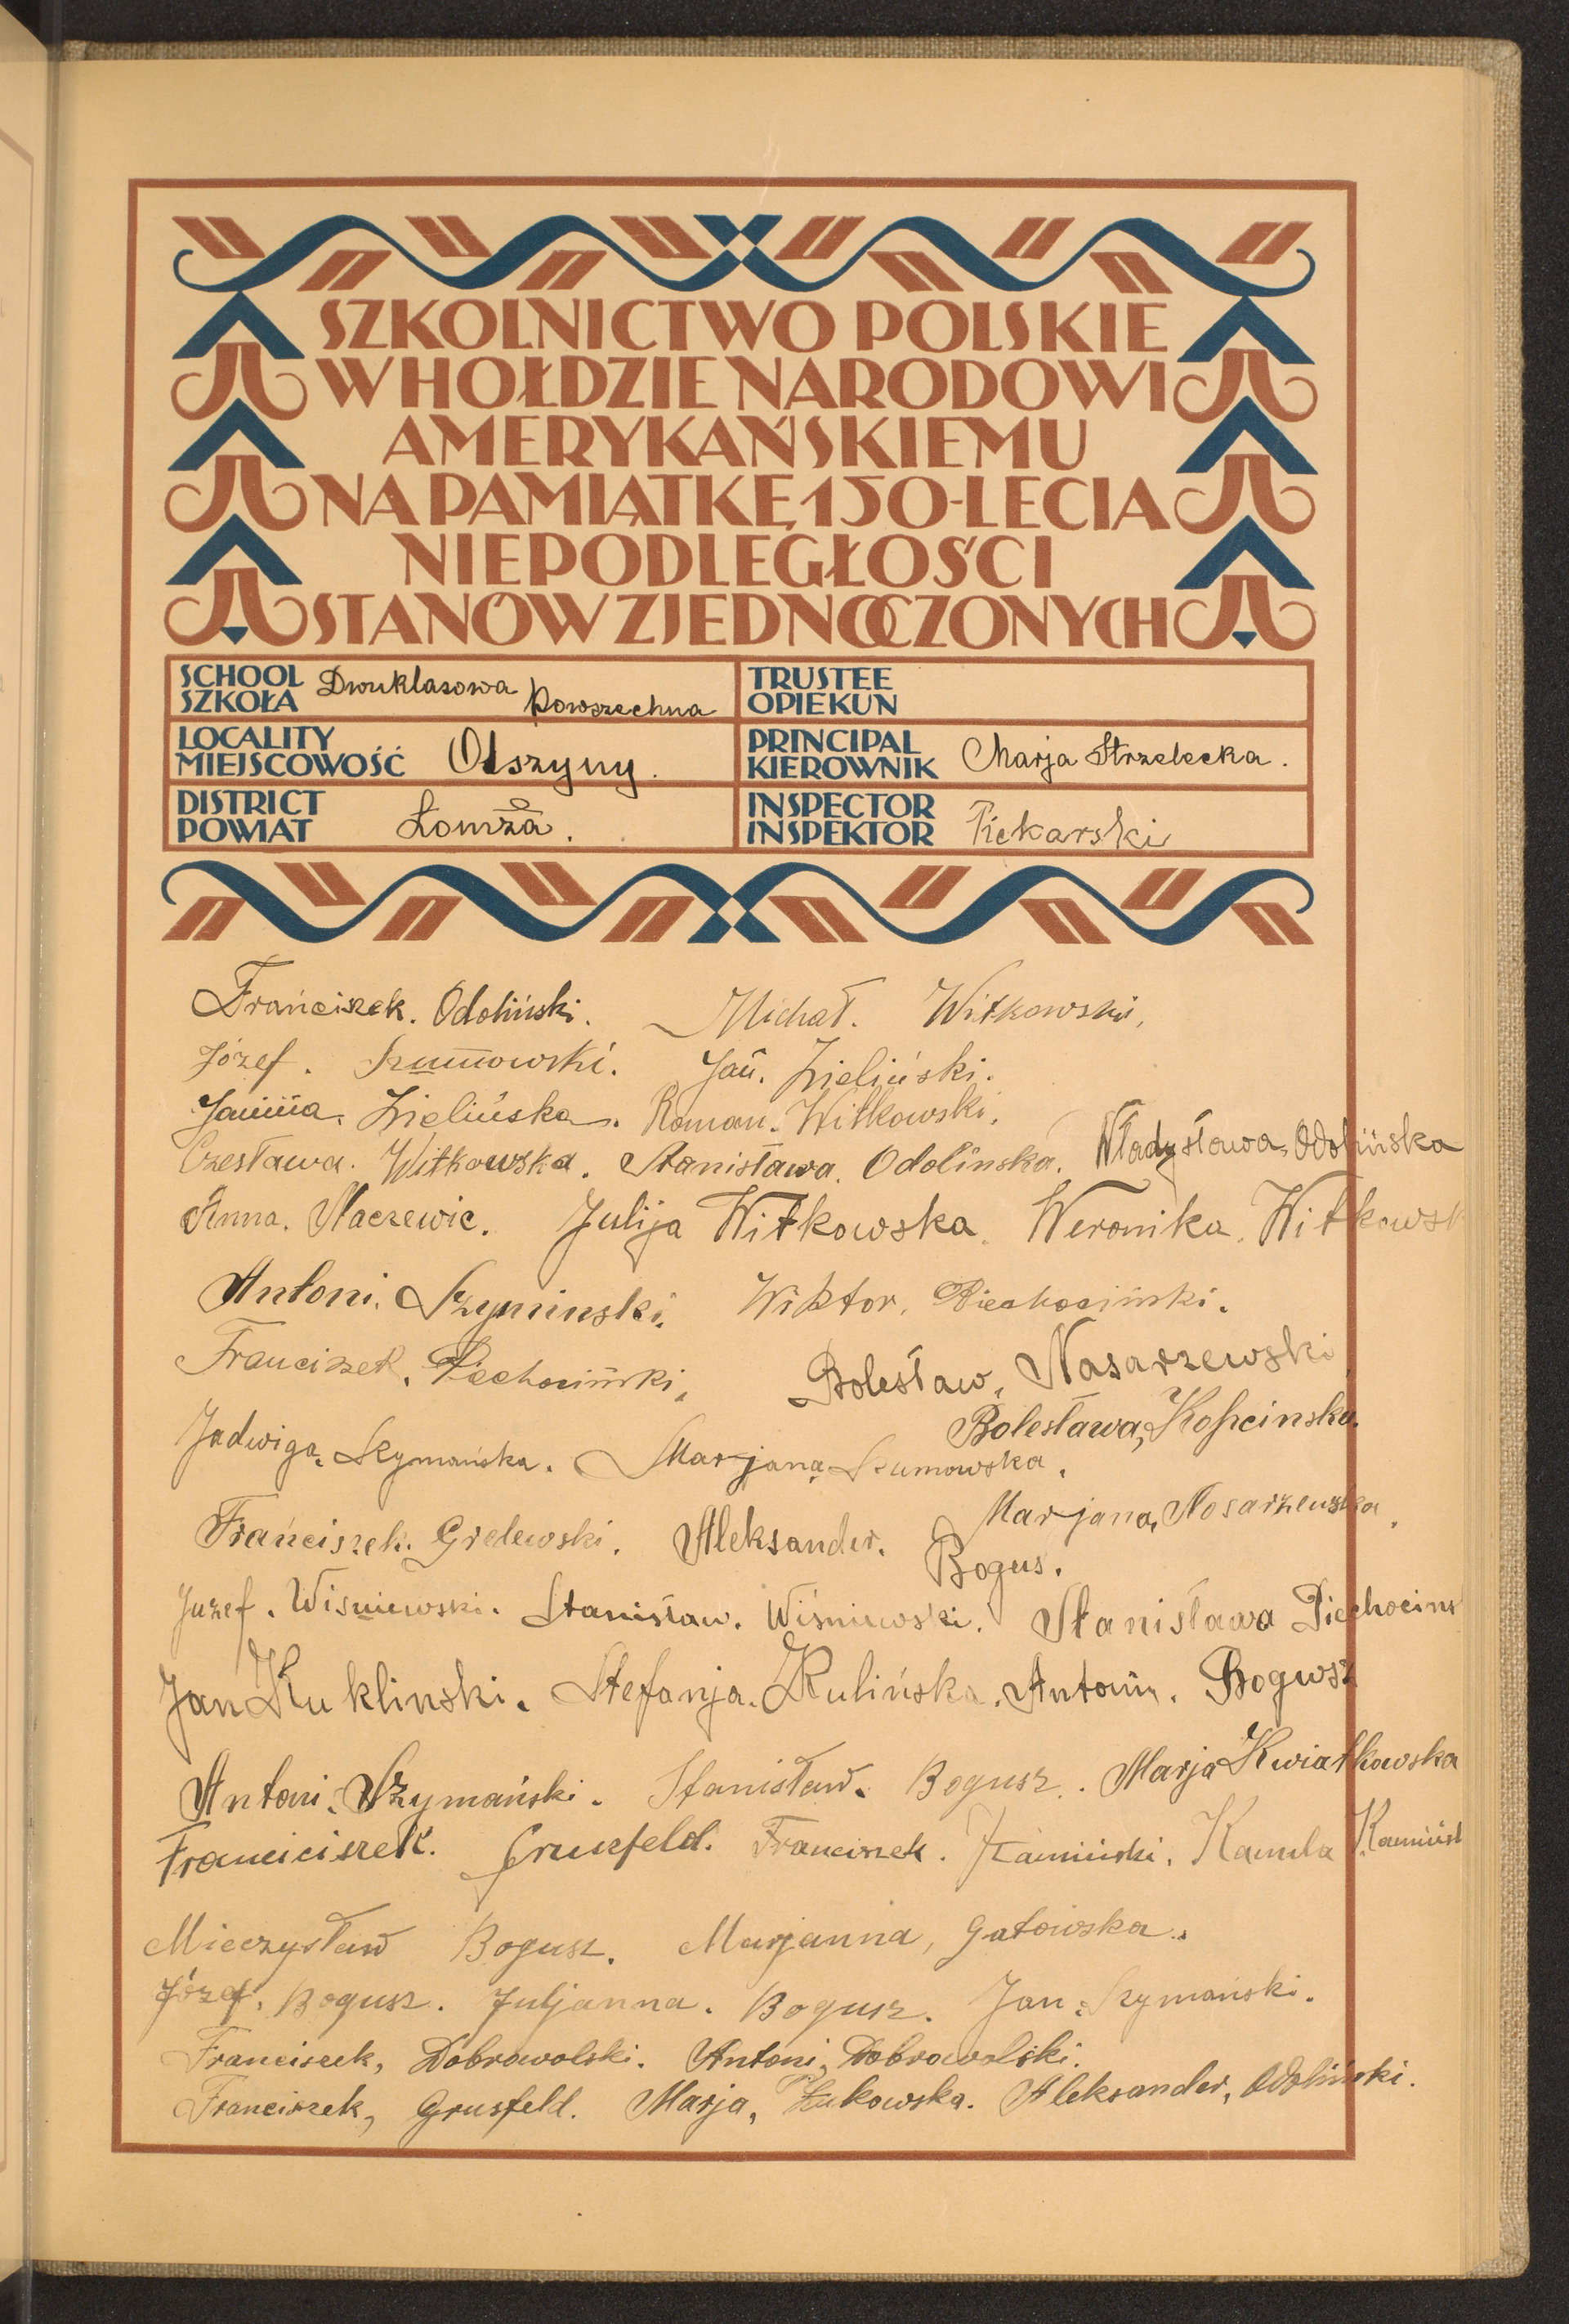 SZKOLNICTWO POLSKIE
W HOŁDZIE NARODOWI
AMERYKAŃSKIEMU
NA PAMIĄTKĘ 150-LECIA
NIEPODLEGŁOŚCI
STANÓW ZJEDNOCZONYCH
SCHOOL
SZKOŁA
Dwuklasowa
Powszechna
TRUSTEE
OPIEKUN
LOCALITY
MIEJSCOWOŚĆ
Olszyny.
PRINCIPAL
KIEROWNIK
Marja Strzelecka.
DISTRICT
POWIAT
Łomża.
INSPECTOR
INSPEKTOR
Piekarski
Franciszek. Odoliński. Michał. Witkowski.
Józef. Szumowski. Jan. Zieliński.
Janina. Zielińska. Roman. Witkowski.
Czesława. Witkowska. Stanisława. Odolinska. Władysława, Odolińska
Anna. Maczewic. Julija Witkowska. Weronika. Witkowsk
Antoni. Szyminski. Wiktor. Piechociński.
Franciszek, Piechociński, Bolesław, Nasarzewski
Bolesława,
Jadwiga. Szymańska. Marjana Szumowska.
Marjana, Nosarzewska.
Franciszek. Gredewski. Aleksander. Bogus.
Juzef. Wisniewski. Stanisław. Wiśniewski. Stanisława Piechocins
Jan Kuklinski. Stefanja. Kulińska. Antoni. Bogusz
Antoni. Szymański. Stanisław. Bogusz. Marja Kwiatkowska
Franciciszek. Gruszfeld. Franciszek. Kamiński. Kamila Kamińsk
Mieczysław Bogusz. Marjanna, Gatowska.
Józef. Bogusz. Juljanna. Bogusz. Jan. Szymański.
Franciszek, Dobrowolski. Antoni, Dobrowolski.
Franciszek, Grusfeld. Marja, Łukowska. Aleksander, Odoliński.